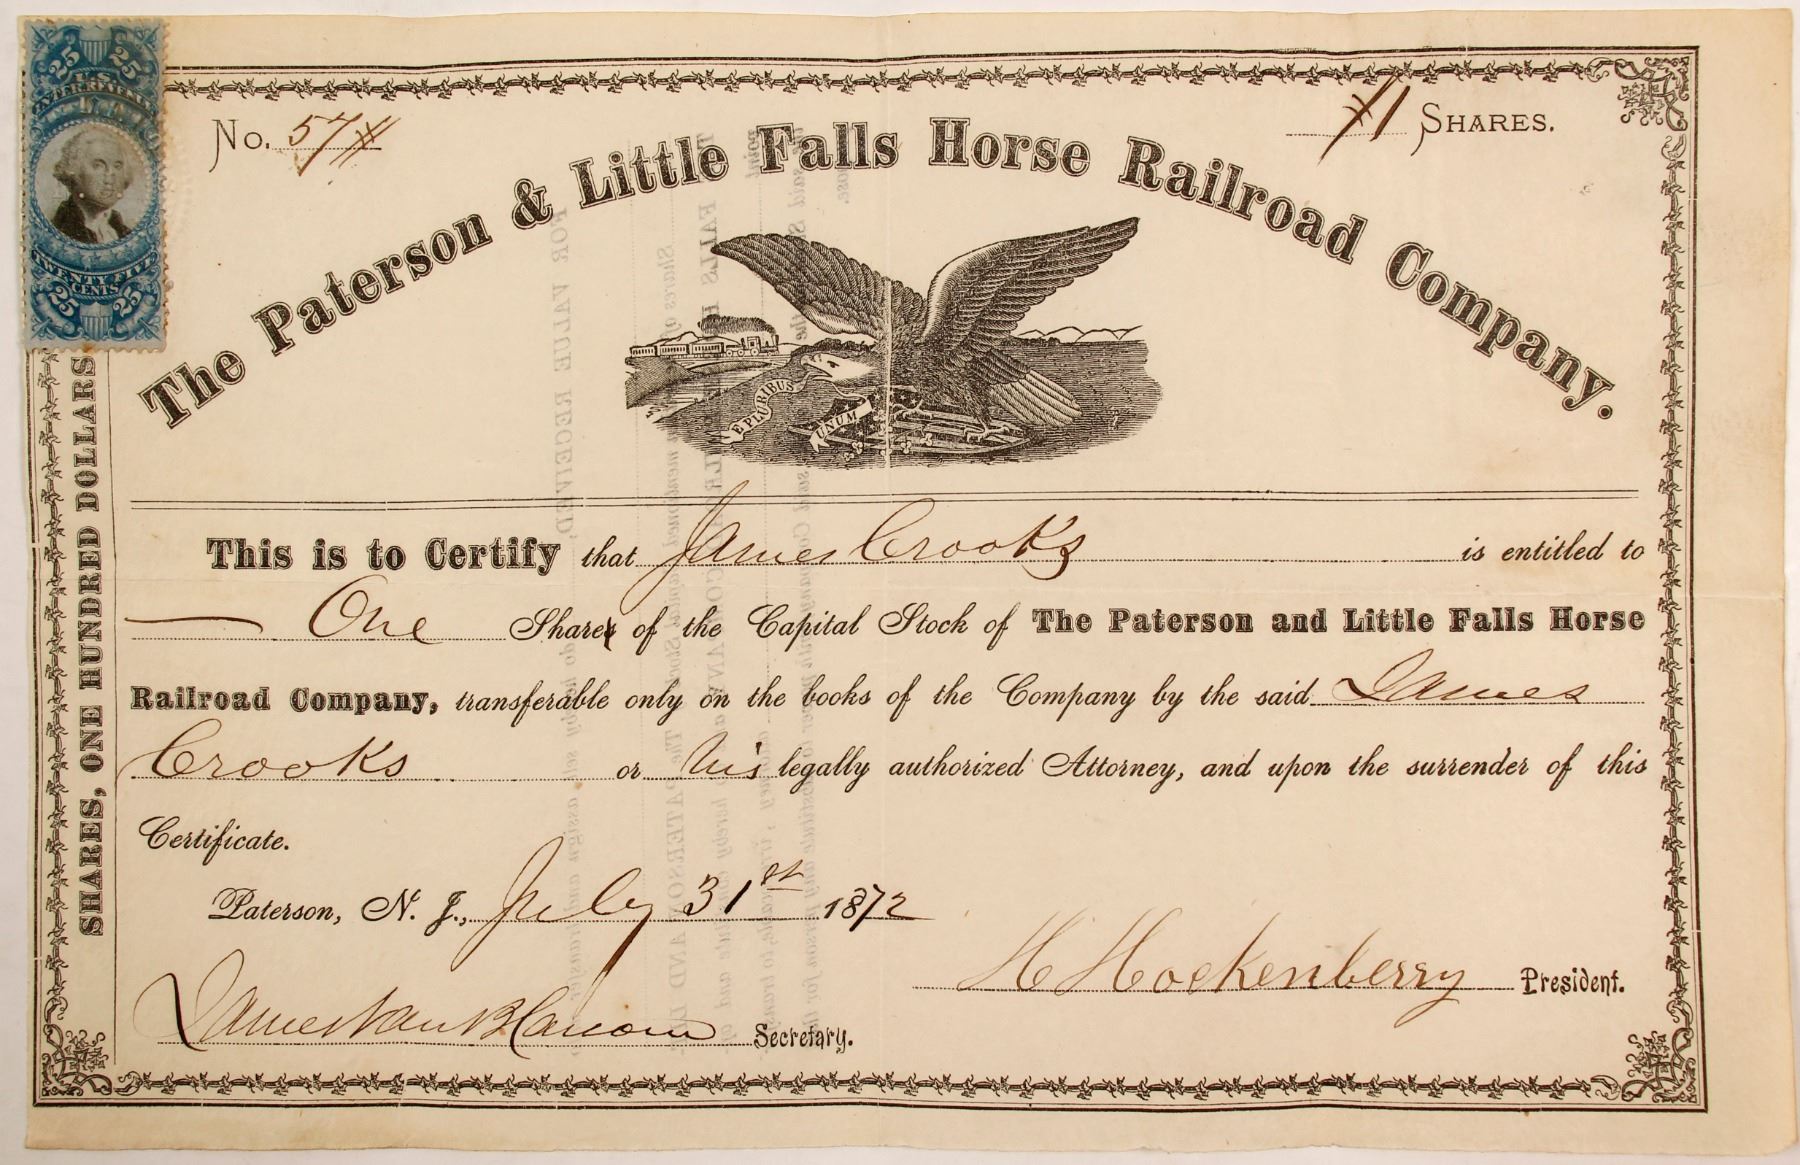 25 25
U.S.
INTER. REVENUE
TWENTY FIVE
CENTS
25 25
No. 57
#1 SHARES.
The Paterson & Little Falls Horse Railroad Company.
E PLURIBUS
UNUM
SHARES, ONE HUNDRED DOLLARS
This is to Certify that James Crooks is entitled to
One Shares of the Capital Stock of The Paterson and Little Falls Horse
Railroad Company, transferable only on the books of the Company by the said James
Crooks or his legally authorized Attorney, and upon the surrender of this
Certificate.
Paterson, N. J., July 31st 1872
H Hockenberry President.
James Van Blarcom Secretary.